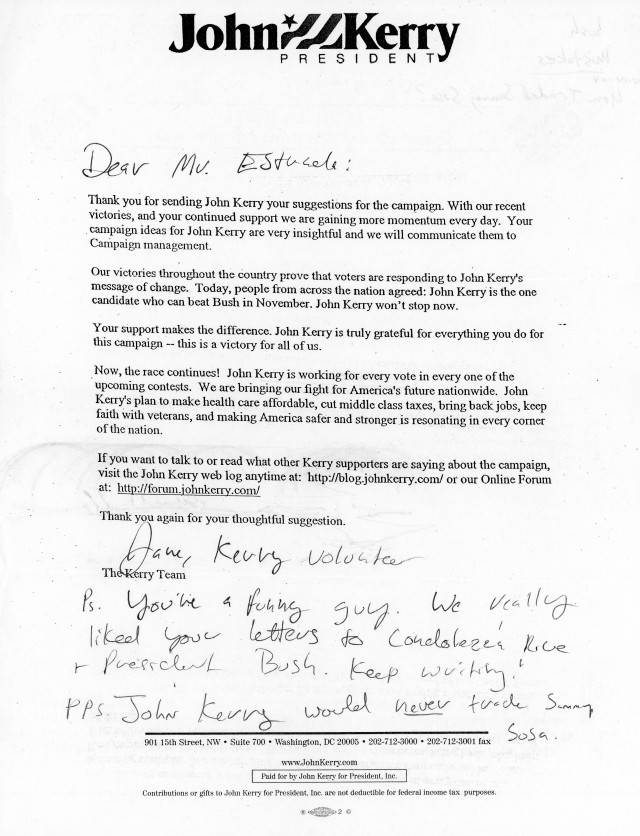 John Kerry
PRESIDENT
Dear Mr.
Thank you for sending John Kerry your suggestions for the campaign. With our recent
victories, and your continued support we are gaining more momentum every day. Your
campaign ideas for John Kerry are very insightful and we will communicate them to
Campaign management.
Our victories throughout the country prove that voters are responding to John Kerry's
message of change. Today, people from across the nation agreed: John Kerry is the one
candidate who can beat Bush in November. John Kerry won't stop now.
Your support makes the difference. John Kerry is truly grateful for everything you do for
this campaign -- this is a victory for all of us.
Now, the race continues! John Kerry is working for every vote in every one of the
upcoming contests. We are bringing our fight for America's future nationwide. John
Kerry's plan to make health care affordable, cut middle class taxes, bring back jobs, keep
faith with veterans, and making America safer and stronger is resonating in every corner
of the nation.
If you want to talk to or read what other Kerry supporters are saying about the campaign,
visit the John Kerry web log anytime at: http://blog.johnkerry.com/ or our Online Forum
at: http://forum.johnkerry.com/
Thank you again for your thoughtful suggestion.
Kerry volunteer
The Kerry Team
Ps. You're a funny guy. We really
liked your letters to Condoleezza Rice
+ President Bush. Keep writing!
PPS. John Kerry would never trade Sammy
Sosa.
901 15th Street, NW • Suite 700 • Washington, DC 20005 • 202-712-3000 • 202-712-3001 fax
www.JohnKerry.com
Paid for by John Kerry for President, Inc.
Contributions or gifts to John Kerry for President, Inc. are not deductible for federal income tax purposes.